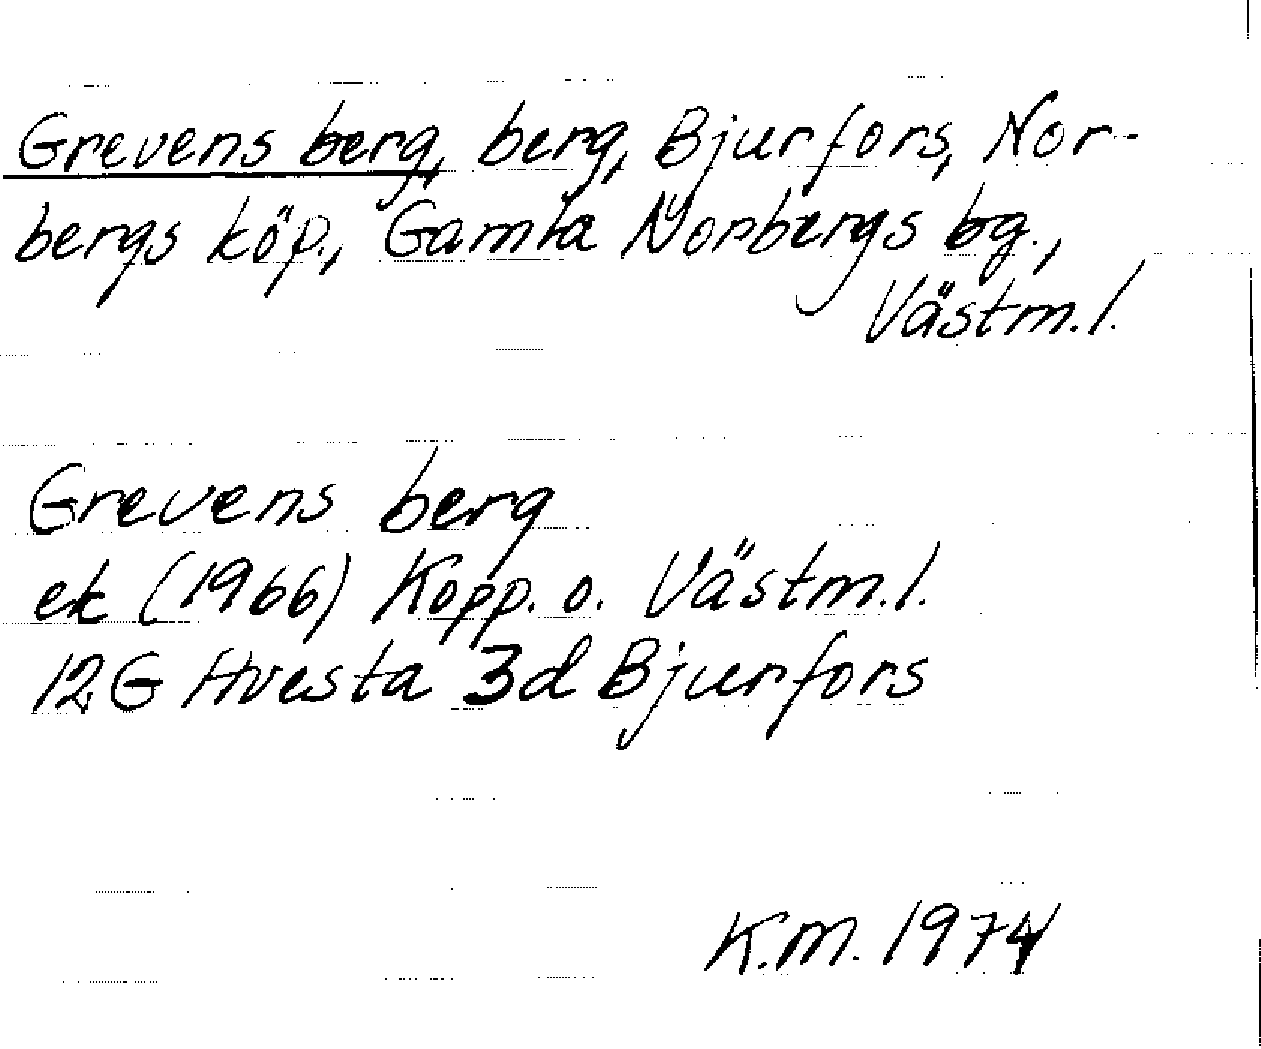 Grevens berg, berg, Bjurfors, Nor-
bergs köp., Gamla Norbergs bg.,
Västm.l.
Grevens berg
ek (1966) Kopp. o. Västm.l.
12G Avesta 3d Bjurfors
K.M. 1974